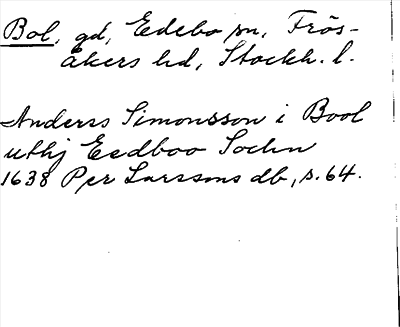 Bol, gd, Edebo sn, Frös-
åkers hd, Stockh. l.
Anders Simonsson i Bool
uthj Eedboo Sochn
1638 Per Larssons db, s. 64.